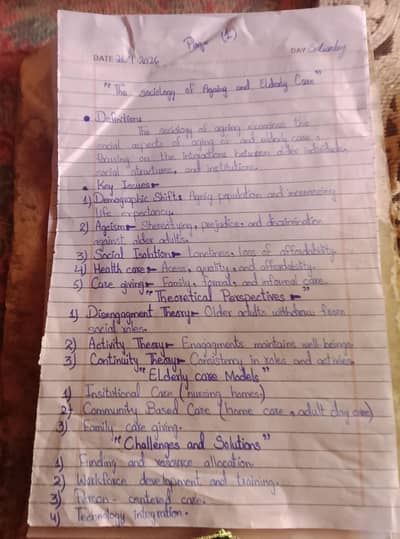 Page (2)
DATE 2026 DAY Saturday
"The sociology of Ageing and Elderly Care"
• Definition
The sociology of ageing examines the
social aspects of aging and elderly care,
focusing on the interactions between older individuals,
social structures, and institutions.
• Key Issues:-
1) Demographic Shift: Aging population and increasing
life expectancy.
2) Ageism:- Stereotyping, prejudice, and discrimination
against older adults.
3) Social Isolation:- Loneliness, loss of affordability.
4) Health care:- Acess, quality, and affortability.
5) Care giving:- Family, formal, and informal care.
"Theoretical Perspectives:-"
1) Disengagment Theory:- Older adults withdraw from
social roles.
2) Activity Theory:- Engagments maintains well-being.
3) Continuity Theory:- Consistency in roles and activies.
"Elderly care Models"
1) Insitutional Care (nursing homes)
2) Community Based Care (home care, adult day care)
3) Family care giving.
"Challenges and Solutions"
1) Funding and resource allocation.
2) Workforce development and training.
3) Person-centered care.
4) Technology integration.